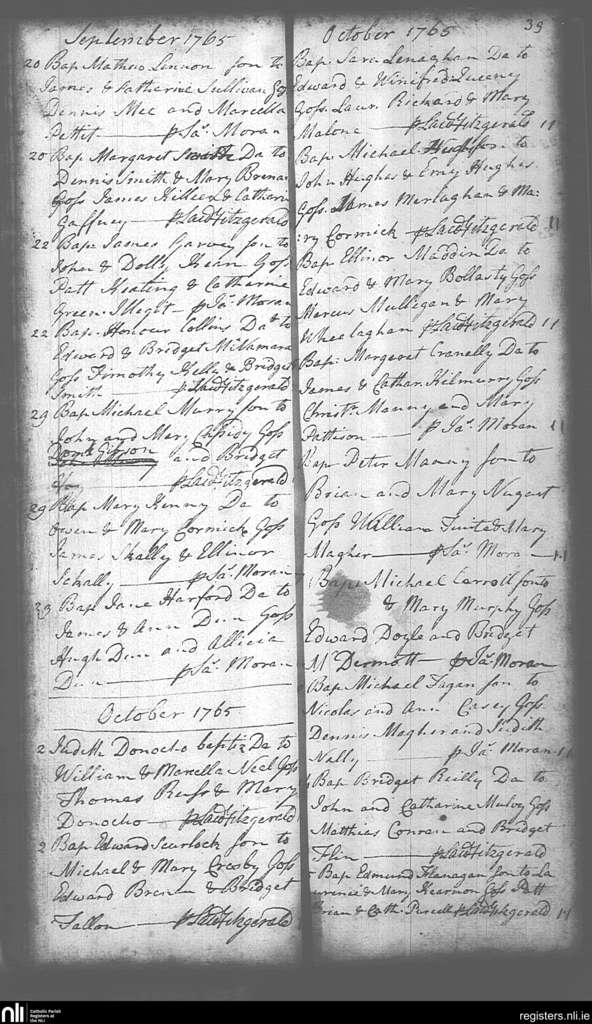 September 1765
20 Bap. Mathew Linnon son to
James & Katherine Sullivan Gos
Dennis Mee and Marcella
Pettit — p Ja. Moran
20 Bap. Margaret Smith Da to
Dennis Smith & Mary
Goss James Killeen & Cathern
Gaffney — p Law Fitzgerald
22 Bap. James Garvey son to
John & Dolly Hearn Goss
Patt Keating & Catharine
Green. Illegit — p Ja. Moran
22 Bap. Honour Collins Da to
Edward & Bridget McNamara
Goss Timothy Kelly & Bridget
Smith — p Law Fitzgerald
29 Bap Michael Murry son to
John and Mary Cassidy Goss
and Bridget
p Law Fitzgerald
29 Bap Mary Kenny Da to
Owen & Mary Cormick Goss
James Skally & Ellinor
Schally — p Ja. Moran
23 Bap Jane Harford Da to
James & Ann Dun Goss
Hugh Dun and Allicia
Dun — p Ja. Moran
October 1765
2 Judith Donocho baptiz Da to
William & Marcella Neel Goss
Thomas & Mary
Donocho — p Law Fitzgerald
2 Bap Edward Scurlock son to
Michael & Mary Crosby Goss
Edward & Bridget
Fallon — p Law Fitzgerald
39
October 1765
Bap. Sara Lenaghan Da to
Edward & Winifred Queeny
Goss. Laur. Rickard & Mary
Malone — p Law Fitzgerald 11
Bap. Michael son to
John Hughes & Hughes
Goss. James Merlaghan & Ma
ry Cormick — p Law Fitzgerald 11
Bap Ellinor Maddin Da to
Edward & Mary Bollasty Goss
Marcus Mulligan & Mary
Wheelaghan p Law Fitzgerald 11
Bap: Margaret Cranelly Da to
James & Cathar. Kilmurry Goss
Christr. Manny and Mary
Pattison — p Ja. Moran 11
Bap Peter Manny son to
Brian and Mary Nugent
Goss William Tuite & Mary
Magher — p Ja. Moran — 11
Bap Michael Carroll son to
& Mary Murphy Goss
Edward Doyle and Bridget
Mc Dermott — p Ja. Moran
Bap Michael Fagan son to
Nicolas and Ann Casey Goss
Dennis Magher and Judith
Nally — p Ja. Moran 11
Bap Bridget Reilly Da to
John and Catharine Mulvy Goss
Matthias Conran and Bridget
Flin — p Law Fitzgerald
Bap Edmund Flanagan son to La
urence & Mary Hearnon Goss Patt
Brian & Cath. Purcell p Law Fitzgerald 11
nli
Catholic Parish
Registers at
the NLI
registers.nli.ie